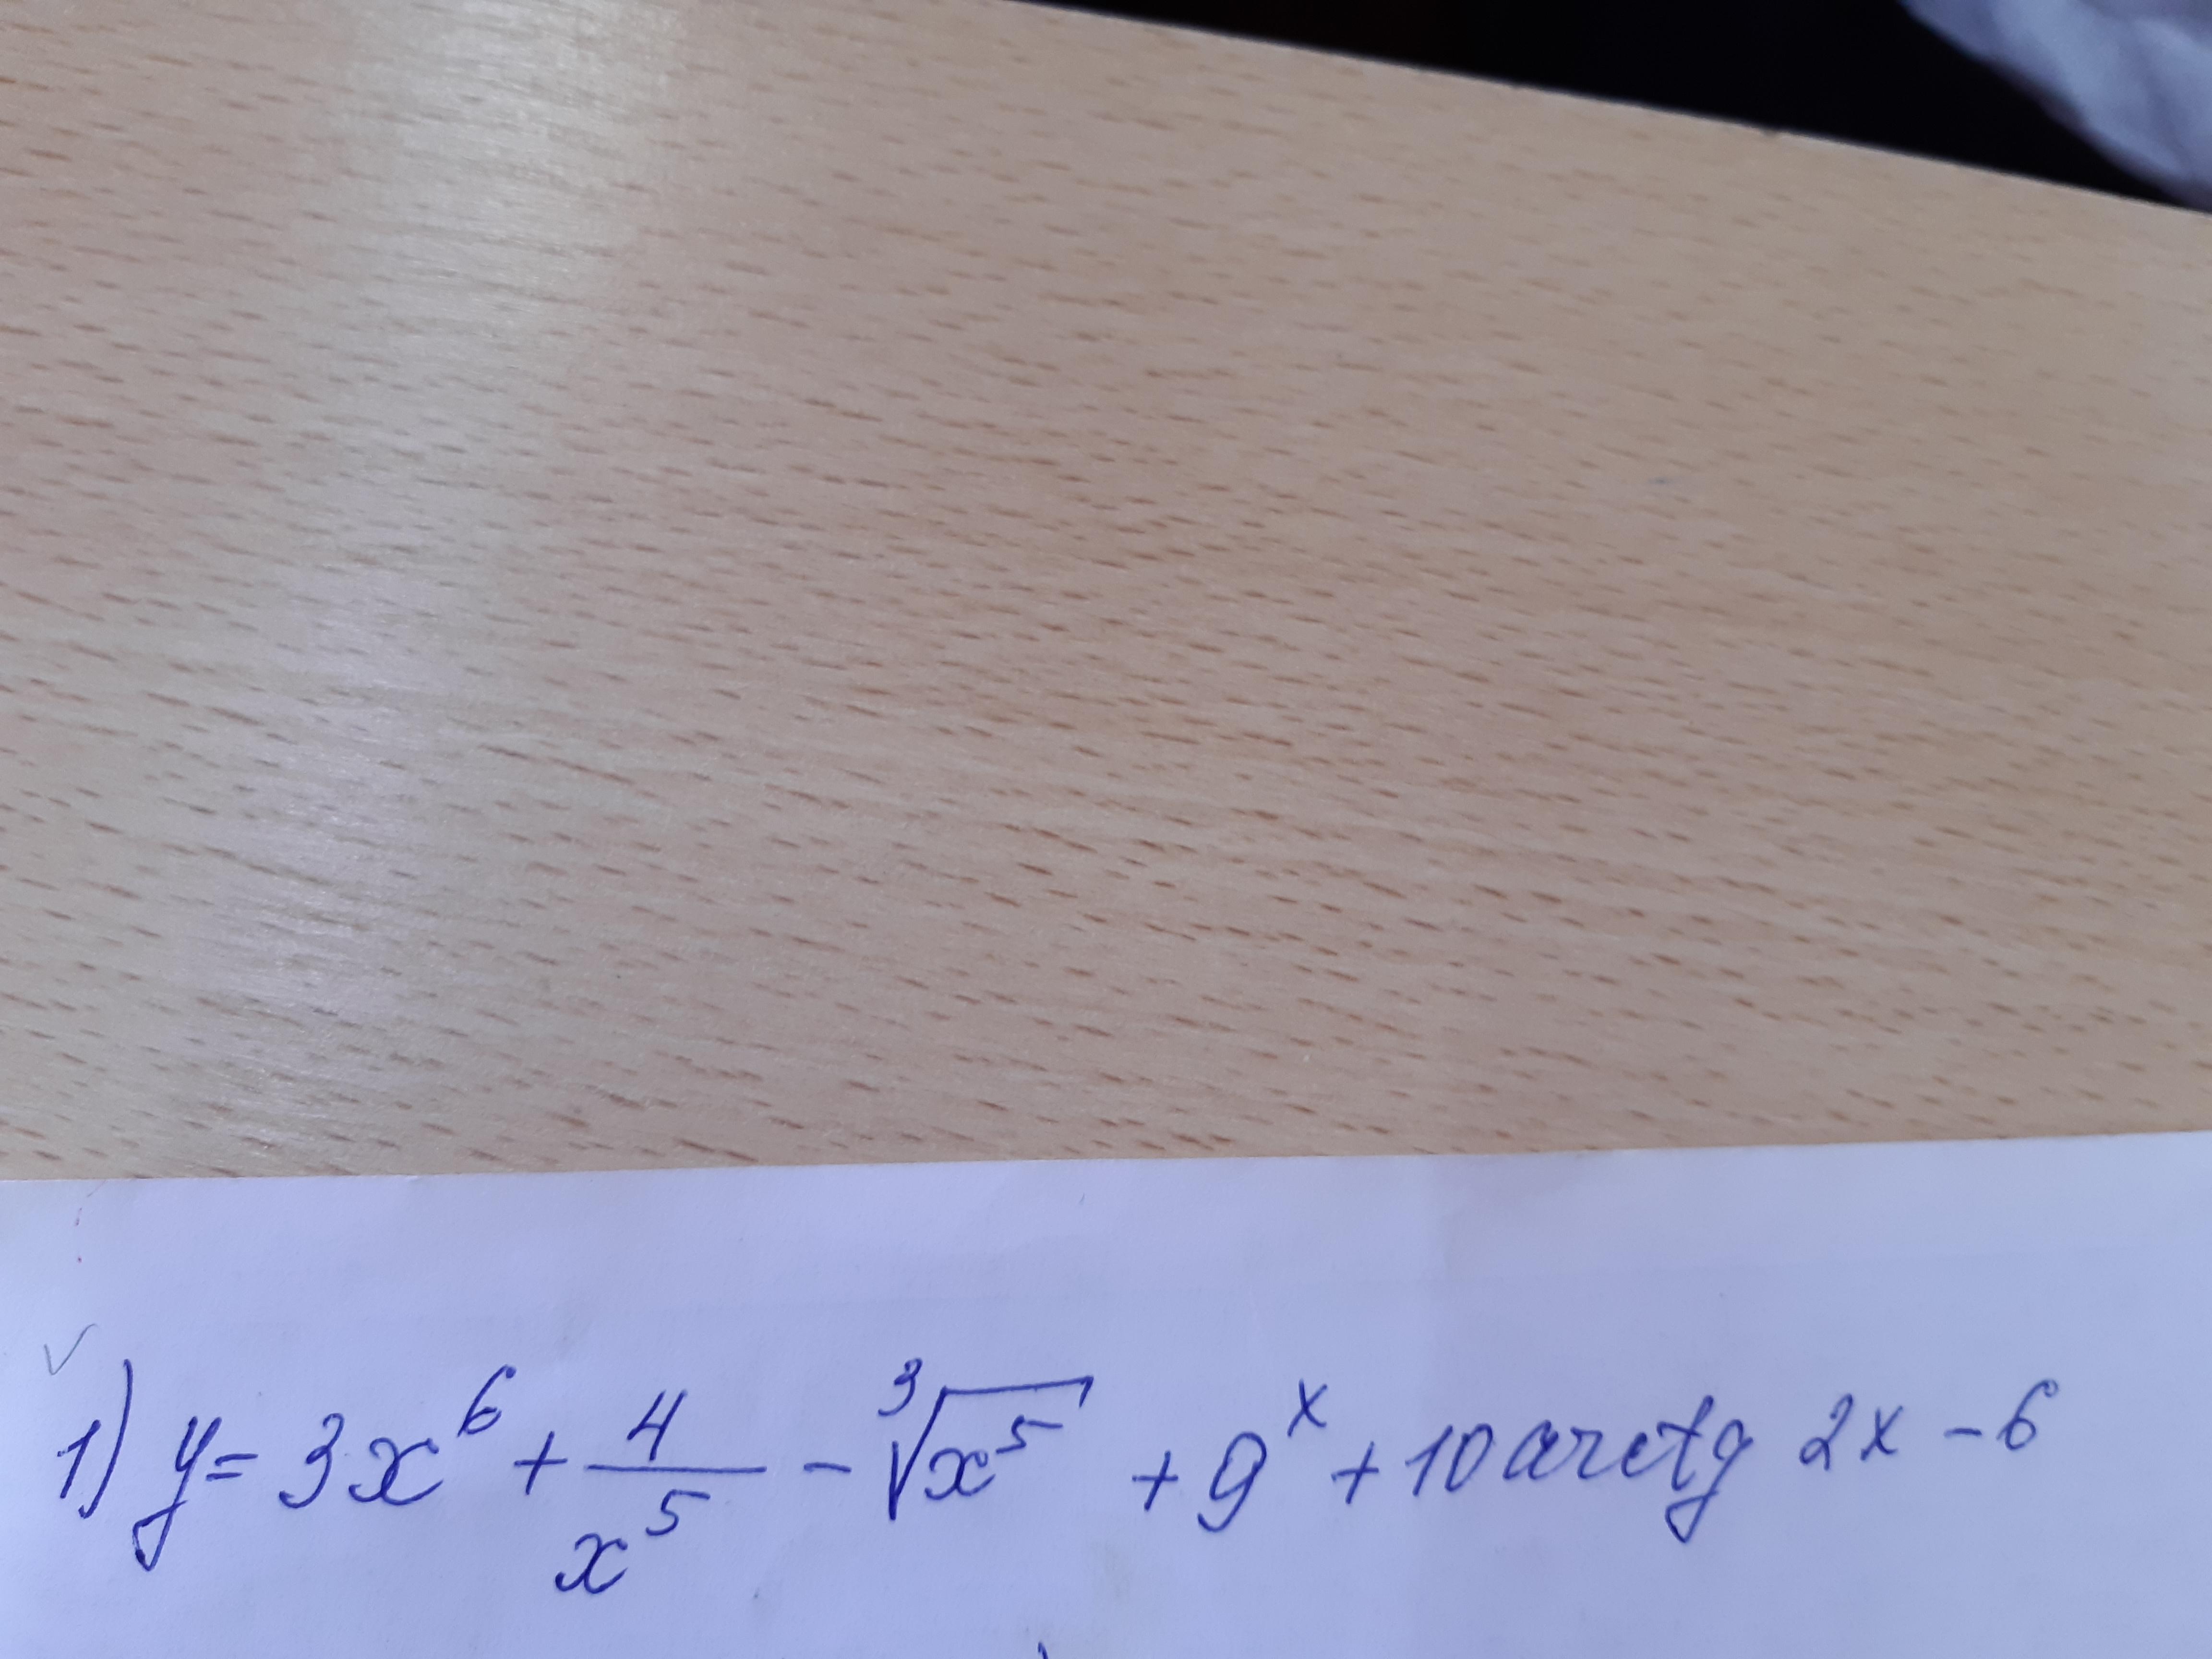 1) y = 3x⁶ + 4/x⁵ - ∛x⁵ + 9ˣ + 10 arctg 2x - 6